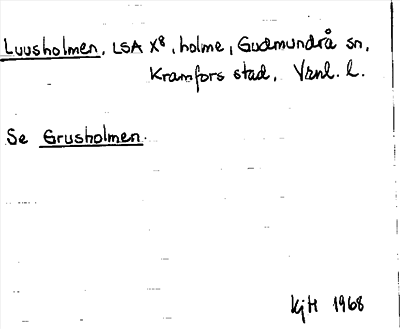 Luusholmen, LSA X8, holme, Gudmundrå sn,
Kramfors stad, Vrnl. l.
Se Grusholmen.
KjH 1968